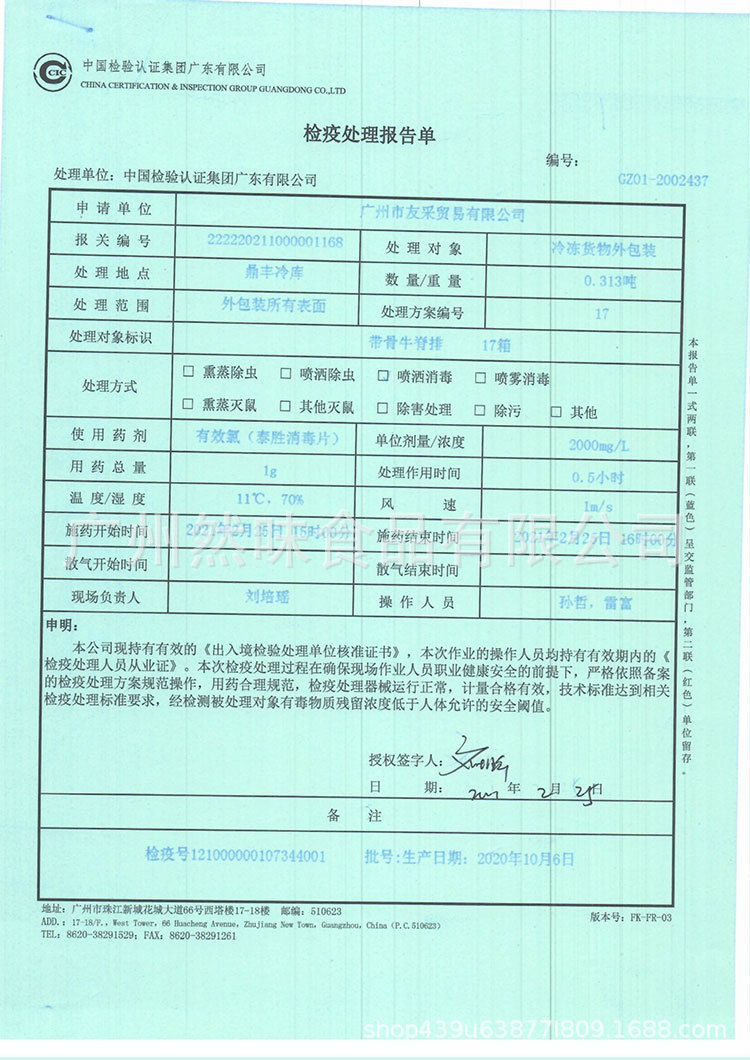 CCIC
中国检验认证集团广东有限公司
CHINA CERTIFICATION & INSPECTION GROUP GUANGDONG CO.,LTD
检疫处理报告单
编号:
处理单位: 中国检验认证集团广东有限公司 GZ01-2002437
申请单位 广州市友采贸易有限公司
报关编号 222220211000001168 处理对象 冷冻货物外包装
处理地点 鼎丰冷库 数量/重量 0.313吨
处理范围 外包装所有表面 处理方案编号 17
处理对象标识 带骨牛脊排 17箱
处理方式
□ 熏蒸除虫 □ 喷洒除虫 □ 喷洒消毒 □ 喷雾消毒
□ 熏蒸灭鼠 □ 其他灭鼠 □ 除害处理 □ 除污 □ 其他
使用药剂 有效氯（泰胜消毒片） 单位剂量/浓度 2000mg/L
用药总量 1g 处理作用时间 0.5小时
温度/湿度 11℃, 70% 风 速 1m/s
施药开始时间 2021年2月25日 15时00分 施药结束时间 2021年2月25日 16时00分
散气开始时间 散气结束时间
现场负责人 刘培瑶 操作人员 孙哲, 雷富
广州然味食品有限公司
申明:
本公司现持有有效的《出入境检验处理单位核准证书》, 本次作业的操作人员均持有有效期内的《
检疫处理人员从业证》。本次检疫处理过程在确保现场作业人员职业健康安全的前提下, 严格依照备案
的检疫处理方案规范操作, 用药合理规范, 检疫处理器械运行正常, 计量合格有效, 技术标准达到相关
检疫处理标准要求, 经检测被处理对象有毒物质残留浓度低于人体允许的安全阈值。
授权签字人:
日 期: 2021 年 2 月 25 日
备 注
检疫号121000000107344001 批号:生产日期: 2020年10月6日
本报告单一式两联, 第一联（蓝色）呈交监管部门, 第二联（红色）单位留存。
地址: 广州市珠江新城花城大道66号西塔楼17-18楼 邮编: 510623
ADD.: 17-18/F., West Tower, 66 Huacheng Avenue, Zhujiang New Town, Guangzhou, China (P.C.510623)
TEL: 8620-38291529; FAX: 8620-38291261
版本号: FK-FR-03
shop439u63877l809.1688.com